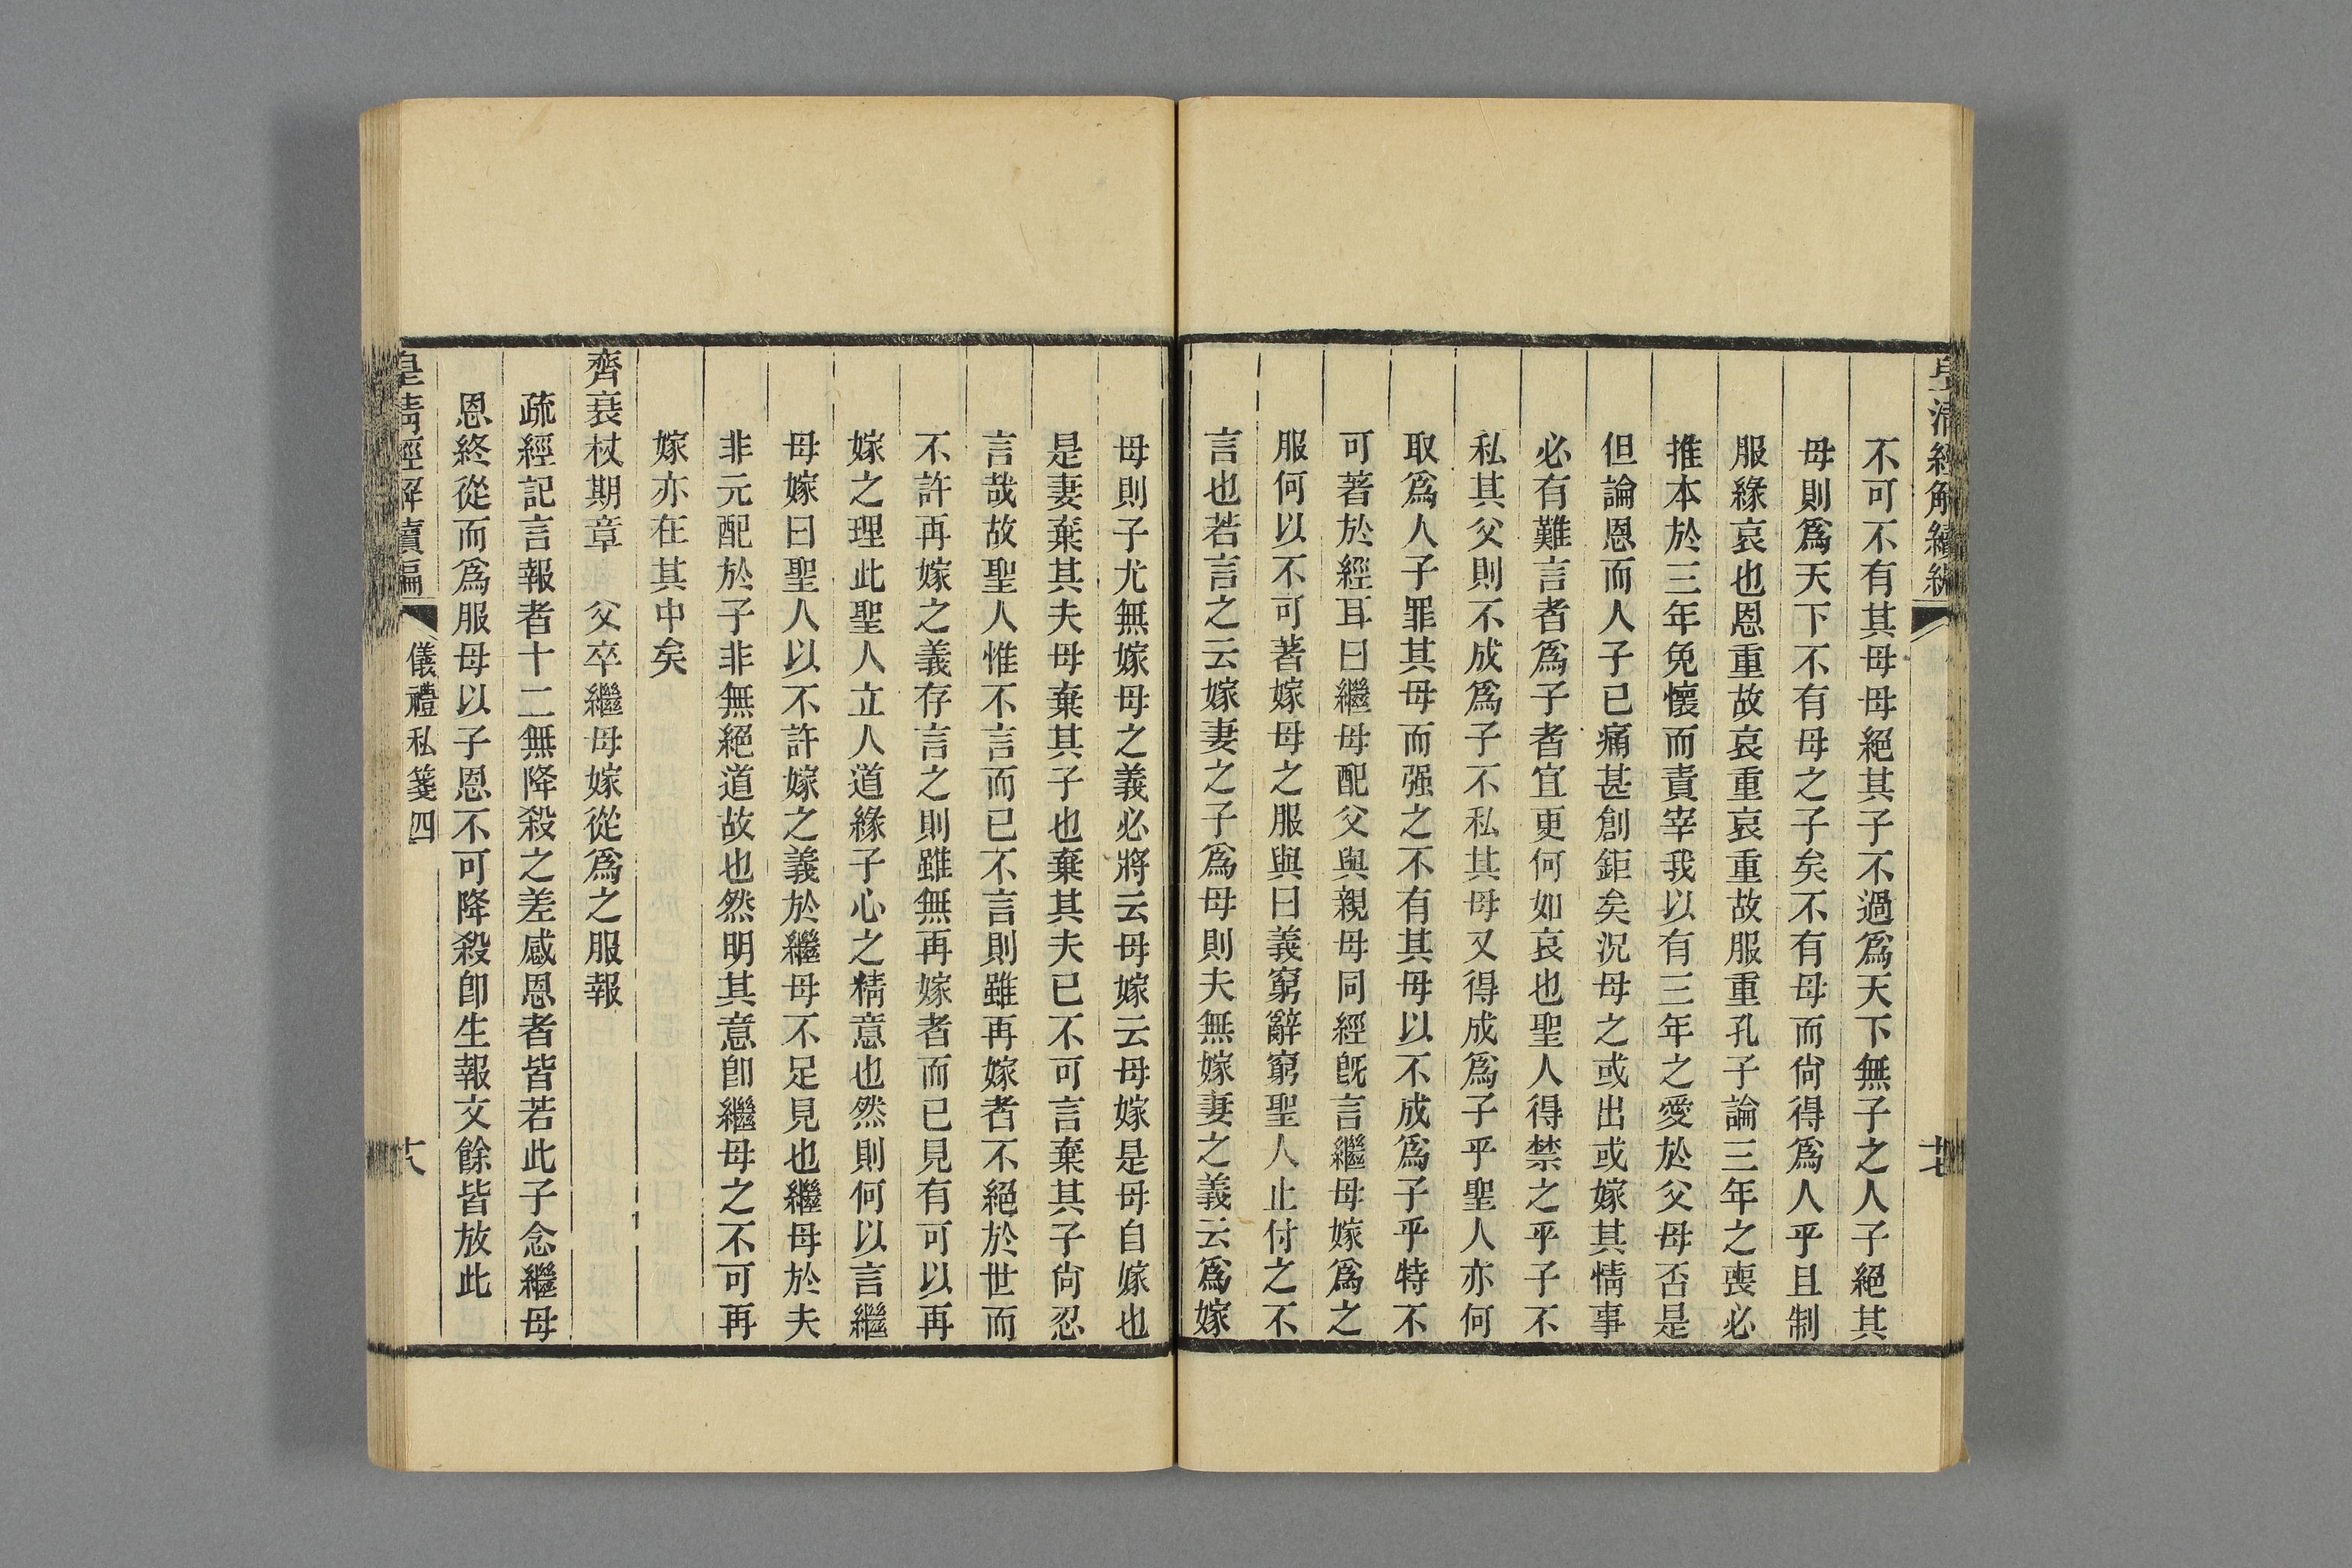 皇清經解續編
不可不有其母母絕其子不過爲天下無子之人子絕其
母則爲天下不有母之子矣不有母而尙得爲人乎且制
服緣哀也恩重故哀重哀重故服重孔子論三年之喪必
推本於三年免懷而責宰我以有三年之愛於父母否是
但論恩而人子已痛甚創鉅矣況母之或出或嫁其情事
必有難言者爲子者宜更何如哀也聖人得禁之乎子不
私其父則不成爲子不私其母又得成爲子乎聖人亦何
取爲人子罪其母而强之不有其母以不成爲子乎特不
可著於經耳曰繼母配父與親母同經旣言繼母嫁爲之
服何以不可著嫁母之服與曰義窮辭窮聖人止付之不
言也若言之云嫁妻之子爲母則夫無嫁妻之義云爲嫁
母則子尤無嫁母之義必將云母嫁云母嫁是母自嫁也
是妻棄其夫母棄其子也棄其夫已不可言棄其子尙忍
言哉故聖人惟不言而已不言則雖再嫁者不絕於世而
不許再嫁之義存言之則雖無再嫁者而已見有可以再
嫁之理此聖人立人道緣子心之精意也然則何以言繼
母嫁曰聖人以不許嫁之義於繼母不足見也繼母於夫
非元配於子非無絕道故也然明其意卽繼母之不可再
嫁亦在其中矣
齊衰杖期章 父卒繼母嫁從爲之服報
疏經記言報者十二無降殺之差感恩者皆若此子念繼母
恩終從而爲服母以子恩不可降殺卽生報文餘皆放此
皇清經解續編 儀禮私箋四